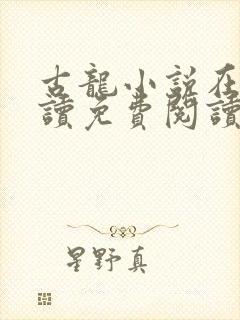 古龍小說在
讀免費閱讀
星野真